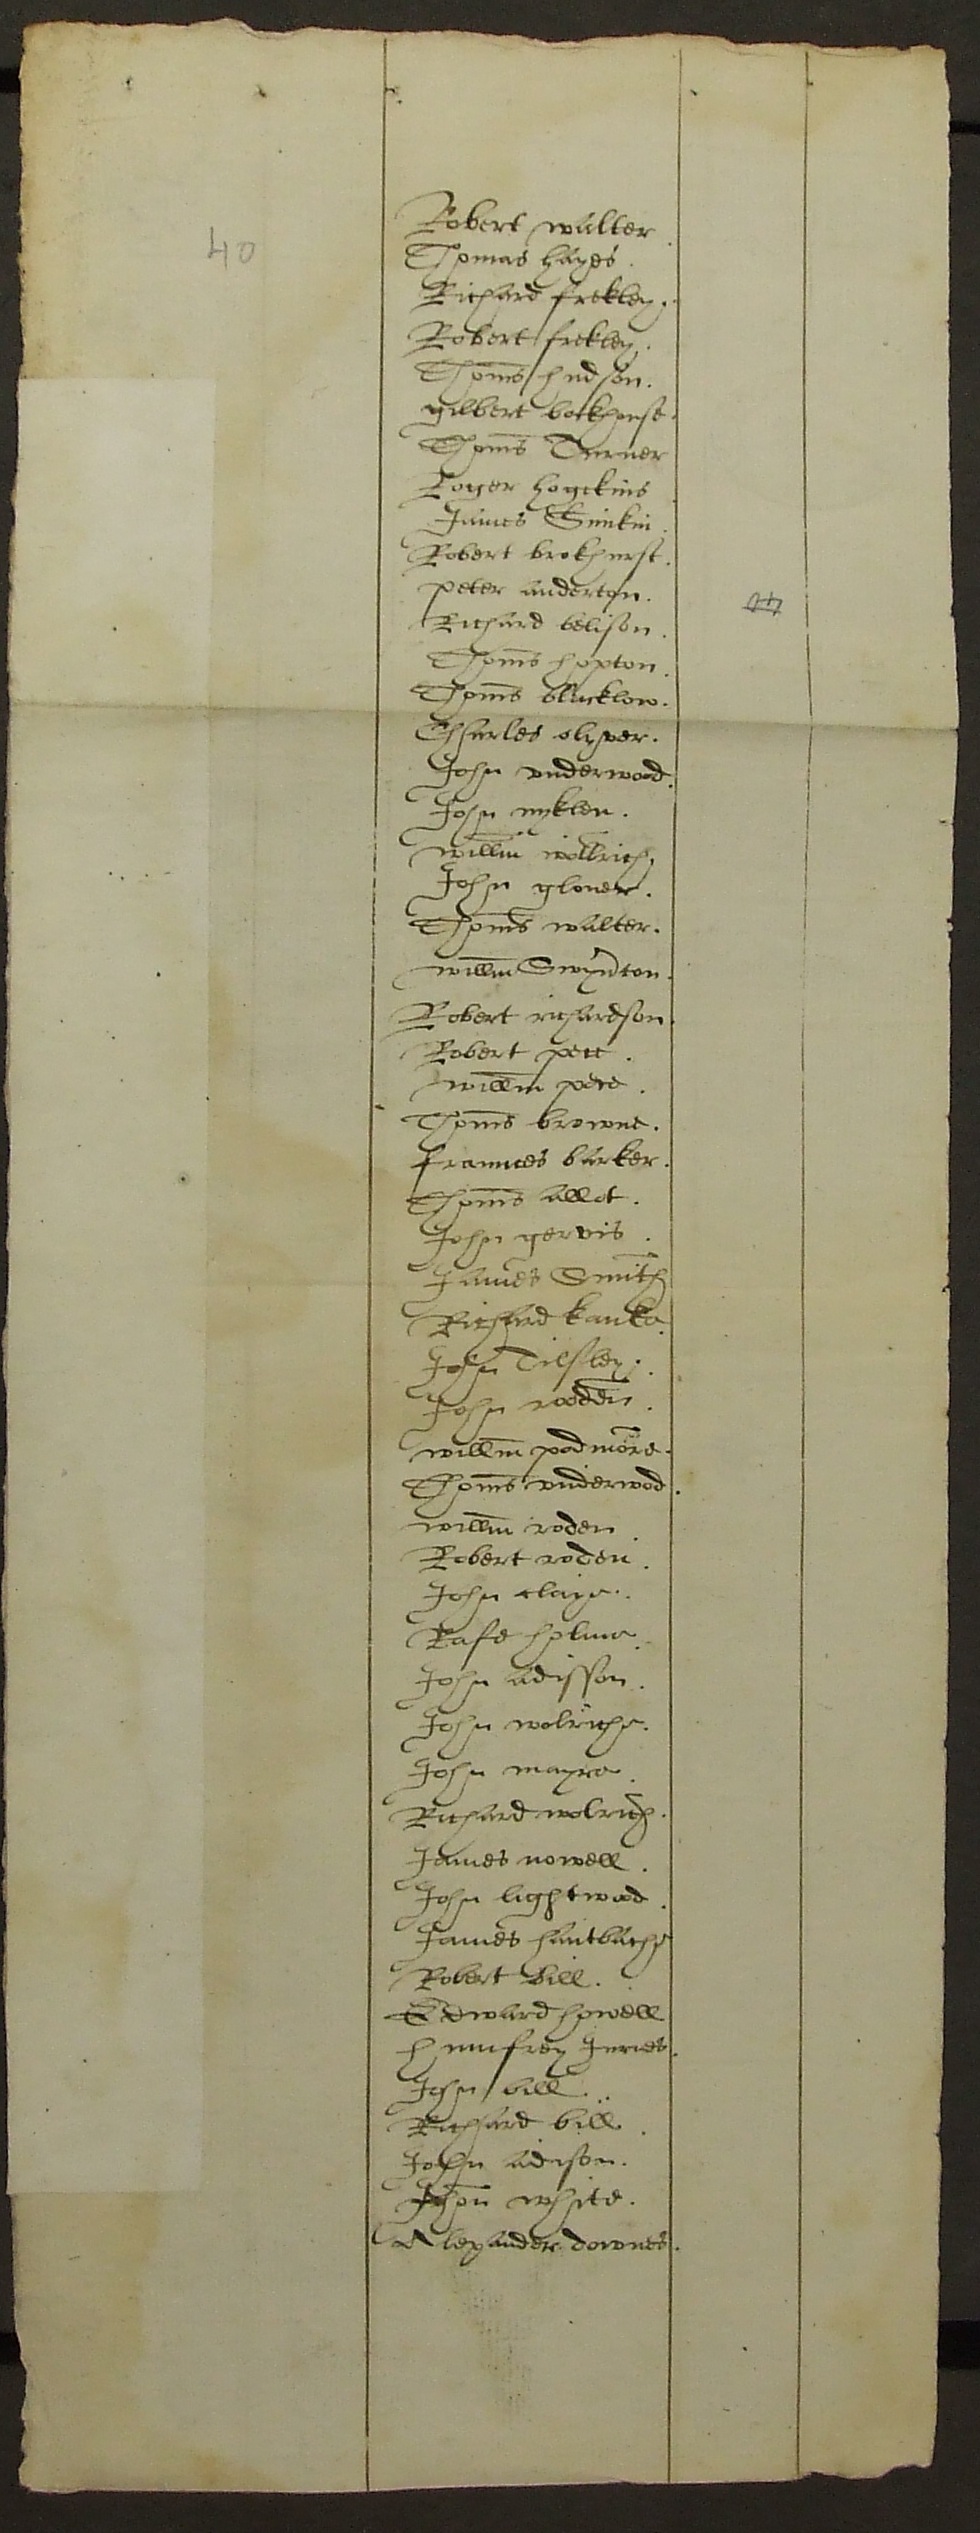 40
Robert walter
Thomas hayes.
Richard frekley.
Robert frekley.
Thoms hudson.
gilbert backhouse.
Thoms Turner
Roger hogekins
James Simkin.
Robert brokhurst.
peter anderton.
Richard belison.
Thoms hopton.
Thoms blacklow.
Charles olyver.
John vnderwood.
John myklen.
willm wollrich
John glover.
Thoms walter.
willm Swynton.
Robert richardson.
Robert pett.
willm pete.
Thoms browne.
fraunces barker.
Thoms allot.
John gervis.
James Smith
Richard
John Tilsley.
John rodden.
willm podmore.
Thoms vnderwod.
willm roden
Robert roden.
John claye.
Rafe holme.
John adisson.
John wolriche.
John mayre.
Richard wolrich.
James nowell.
John lightwood.
James hautbache
Robert bill.
Edward howell
humfrey
John bill.
Richard bill.
John adison.
Jhon white.
Alexander downes.